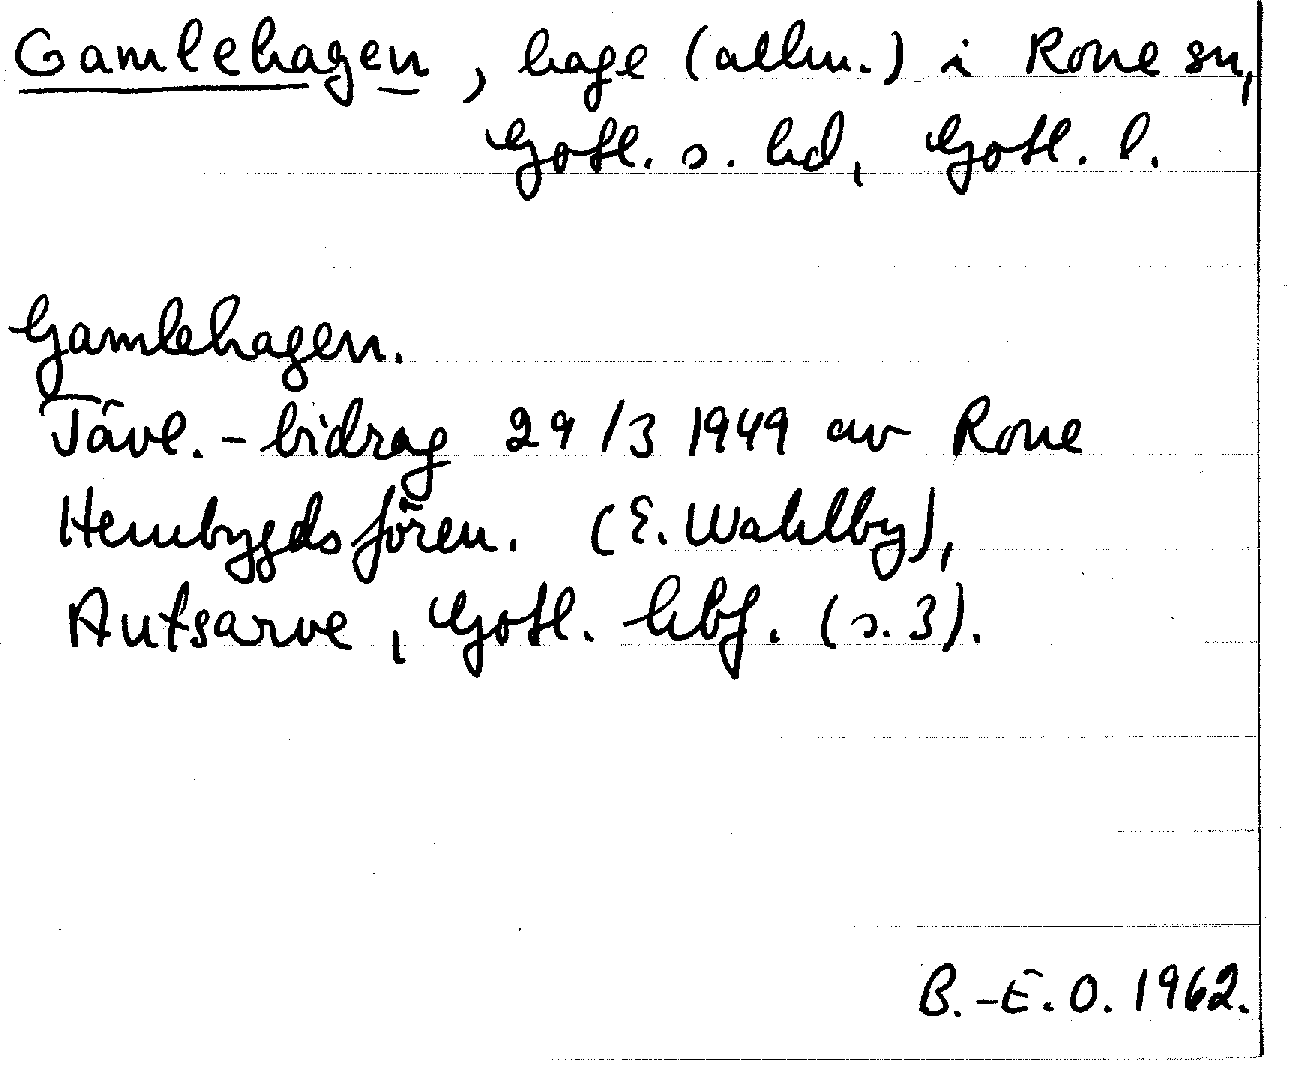 Gamlehagen, hage (allm.) i Rone sn,
Gotl. s. hd, Gotl. l.
Gamlehagen.
Tävl.-bidrag 29/3 1949 av Rone
Hembygdsfören. (E. Wahlby),
Autsarve, Gotl. hbf. (s. 3).
B.-E. O. 1962.